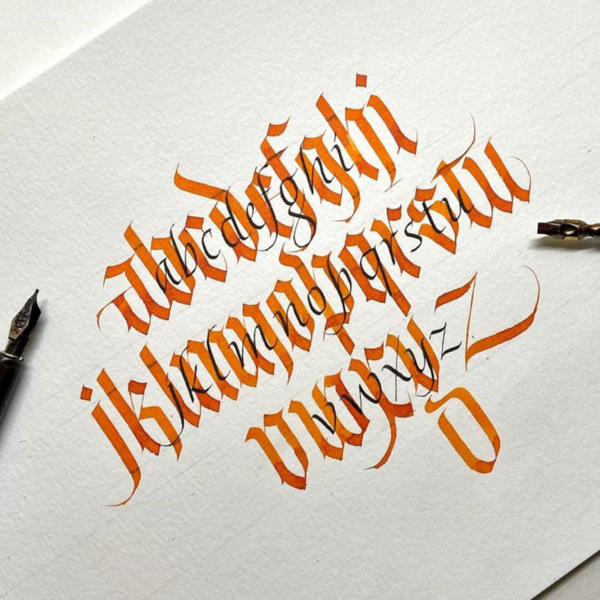 abcdefghi
abcdefghi
jklmnopqrstu
jklmnopqrstu
vwxyz
vwxyz